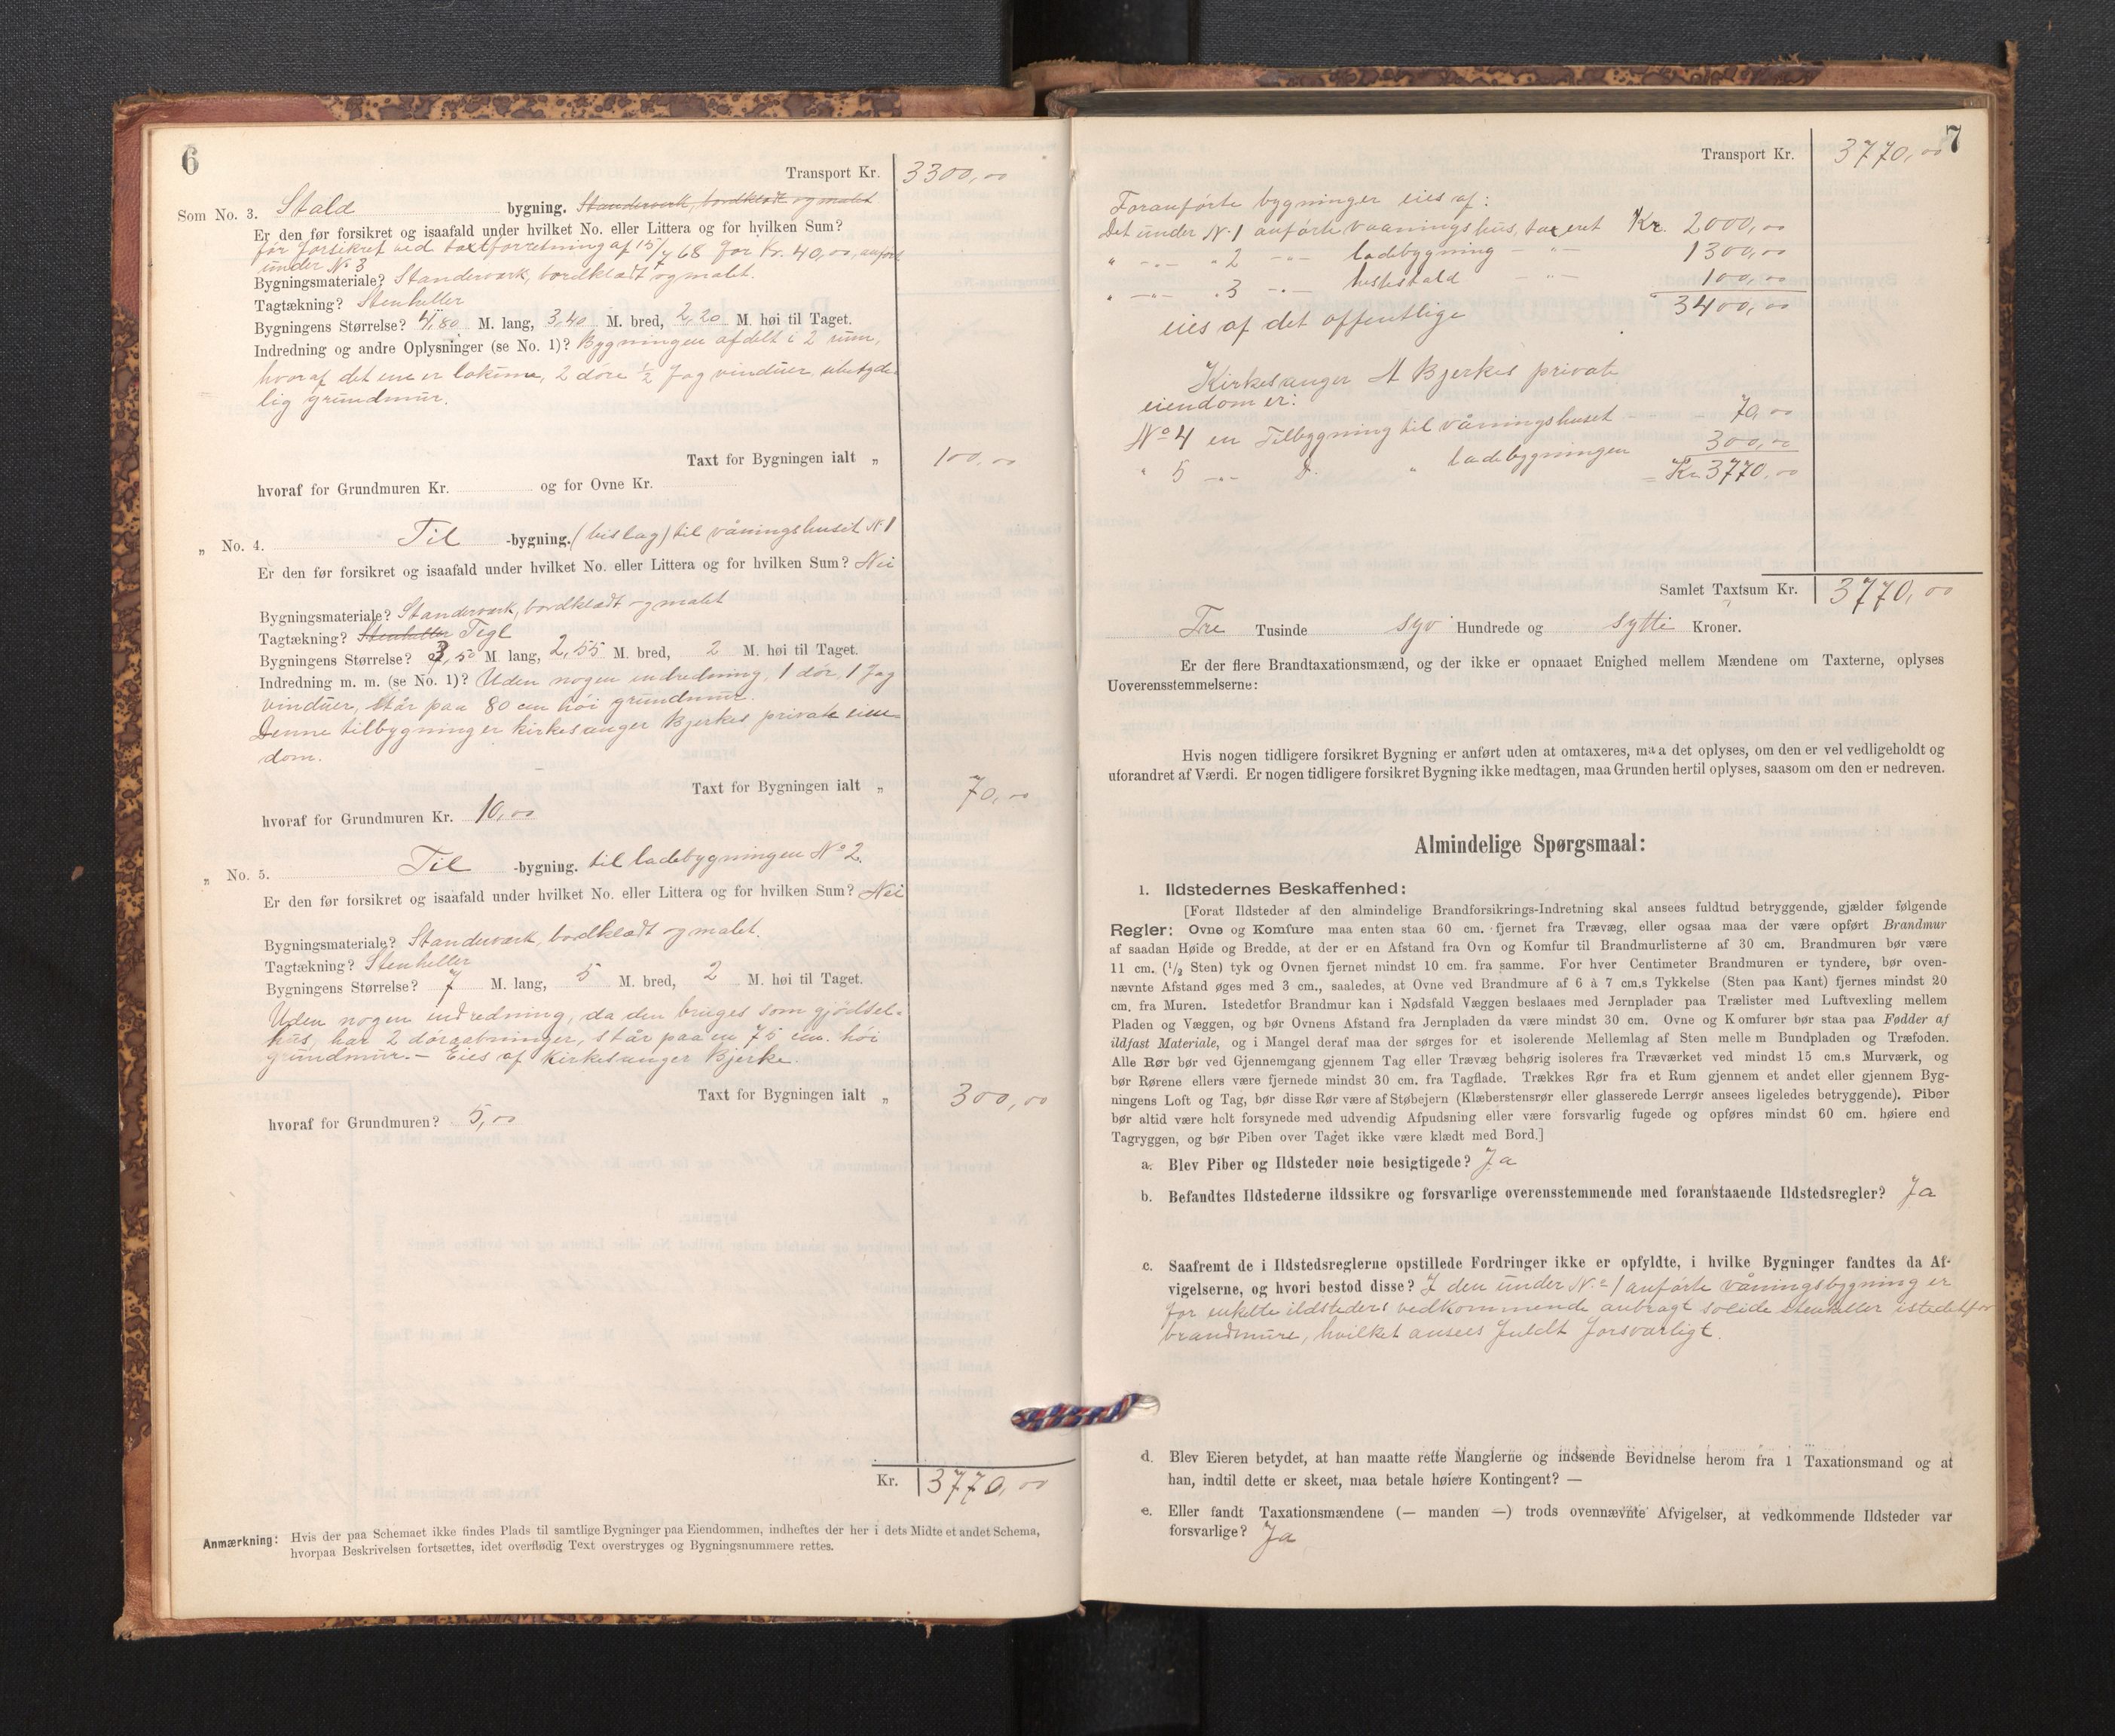 6
Transport Kr. 3300,00
Som No. 3. Stald bygning. Standerverk, bordklædt og malet
Er den før forsikret og isaafald under hvilket No. eller Littera og for hvilken Sum?
før forsikret ved taxtforretning af 15/7 68 for Kr. 40,00, anført
under No 3
Bygningsmateriale? Standerværk, bordklædt og malet.
Tagtækning? Stenheller
Bygningens Størrelse? 4,80 M. lang, 3,40 M. bred, 2,20 M. høi til Taget.
Indredning og andre Oplysninger (se No. 1)? Bygningen afdelt i 2 rum,
hvoraf det ene er lokum, 2 døre 1/2 fag vinduer, ubetyde-
lig grundmur.
Taxt for Bygningen ialt „ 100,00
hvoraf for Grundmuren Kr. og for Ovne Kr.
„ No. 4. Til -bygning. (bislag) til våningshuset No 1
Er den før forsikret og isaafald under hvilket No. eller Littera og for hvilken Sum? Nei
Bygningsmateriale? Standerværk, bordklædt og malet
Tagtækning? Stenheller Tegl
Bygningens Størrelse? 3,50 M lang, 2,55 M. bred, 2 M. høi til Taget.
Indredning m. m. (se No. 1)? Uden nogen indredning, 1 dør, 1 fag
vinduer, står paa 80 cm høi grundmur.
Denne tilbygning er kirkesanger Bjerkes private eien-
dom.
Taxt for Bygningen ialt „ 70,00
hvoraf for Grundmuren Kr. 10,00
„ No. 5. Til -bygning. til ladebygningen No 2.
Er den før forsikret og isaafald under hvilket No. eller Littera og for hvilken Sum? Nei
Bygningsmateriale? Standerværk, bordklædt og malet.
Tagtækning? Stenheller
Bygningens Størrelse? 7 M. lang, 5 M. bred, 2 M. høi til Taget.
Uden nogen indredning, da den bruges som gjødsel-
hus, har 2 døraabninger, står paa en 75 cm. høi
grundmur. - Eies af Kirkesanger Bjerke.
Taxt for Bygningen ialt „ 300,00
hvoraf for Grundmuren? 5,00
Kr. 3770,00
Anmærkning: Hvis der paa Schemaet ikke findes Plads til samtlige Bygninger paa Eiendommen, indheftes der her i dets Midte et andet Schema,
hvorpaa Beskrivelsen fortsættes, idet overflødig Text overstryges og Bygningsnummere rettes.
7
Transport Kr. 3770,00
Foranførte bygninger eies af:
Det under No 1 anførte vaaningshus, taxeret Kr. 2000,00
" -"- " 2 -"- ladebygning -"- 1300,00
" -"- " 3 -"- hestestald -"- 100,00
eies af det offentlige 3400,00
Kirkesanger A Bjerkes private
eiendom er:
No 4 en Tilbygning til våningshuset - 70,00
" 5 -"- D. " ladebygningen 300,00
= Kr 3770,00
Samlet Taxtsum Kr. 3770,00
Tre Tusinde syv Hundrede og sytti Kroner.
Er der flere Brandtaxationsmænd, og der ikke er opnaaet Enighed mellem Mændene om Taxterne, oplyses
Uoverensstemmelserne:
Hvis nogen tidligere forsikret Bygning er anført uden at omtaxeres, maa det oplyses, om den er vel vedligeholdt og
uforandret af Værdi. Er nogen tidligere forsikret Bygning ikke medtagen, maa Grunden hertil oplyses, saasom om den er nedreven.
Almindelige Spørgsmaal:
1. Ildstedernes Beskaffenhed:
[Forat Ildsteder af den almindelige Brandforsikrings-Indretning skal ansees fuldtud betryggende, gjælder følgende
Regler: Ovne og Komfure maa enten staa 60 cm. fjernet fra Trævæg, eller ogsaa maa der være opført Brandmur
af saadan Høide og Bredde, at der er en Afstand fra Ovn og Komfur til Brandmurlisterne af 30 cm. Brandmuren bør være
11 cm. (1/2 Sten) tyk og Ovnen fjernet mindst 10 cm. fra samme. For hver Centimeter Brandmuren er tyndere, bør oven-
nævnte Afstand øges med 3 cm., saaledes, at Ovne ved Brandmure af 6 à 7 cm.s Tykkelse (Sten paa Kant) fjernes mindst 20
cm. fra Muren. Istedetfor Brandmur kan i Nødsfald Væggen beslaaes med Jernplader paa Trælister med Luftvexling mellem
Pladen og Væggen, og bør Ovnens Afstand fra Jernpladen da være mindst 30 cm. Ovne og Komfurer bør staa paa Fødder af
ildfast Materiale, og i Mangel deraf maa der sørges for et isolerende Mellemlag af Sten mellem Bundpladen og Træfoden.
Alle Rør bør ved Gjennemgang gjennem Tag eller Trævæg behørig isoleres fra Træværket ved mindst 15 cm.s Murværk, og
bør Rørene ellers være fjernede mindst 30 cm. fra Tagflade. Trækkes Rør fra et Rum gjennem et andet eller gjennem Byg-
ningens Loft og Tag, bør disse Rør være af Støbejern (Klæberstensrør eller glasserede Lerrør ansees ligeledes betryggende). Piber
bør altid være helt forsynede med udvendig Afpudsning eller være forsvarlig fugede og opføres mindst 60 cm. høiere end
Tagryggen, og bør Piben over Taget ikke være klædt med Bord.]
a. Blev Piber og Ildsteder nøie besigtigede? Ja
b. Befandtes Ildstederne ildssikre og forsvarlige overensstemmende med foranstaaende Ildstedsregler? Ja
c. Saafremt de i Ildstedsreglerne opstillede Fordringer ikke er opfyldte, i hvilke Bygninger fandtes da Af-
vigelserne, og hvori bestod disse? I den under No 1 anførte våningsbygning er
for enkelte ildsteders vedkommende anbragt solide stenheller istedetfor
brandmure, hvilket ansees fuldt forsvarligt.
d. Blev Eieren betydet, at han maatte rette Manglerne og indsende Bevidnelse herom fra 1 Taxationsmand og at
han, indtil dette er skeet, maa betale høiere Kontingent? —
e. Eller fandt Taxationsmændene (— manden —) trods ovennævnte Afvigelser, at vedkommende Ildsteder var
forsvarlige? Ja